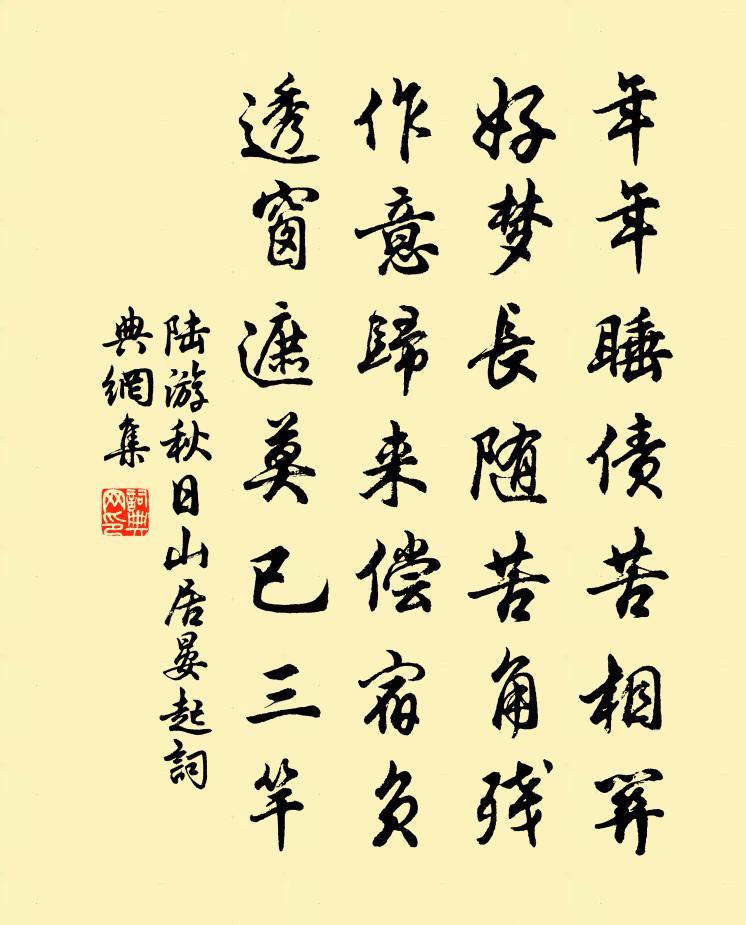 年年睡债苦相關
好梦长随苦角残
作意歸来偿宿负
透窗遮莫已三竿
陆游秋日山居晏起詞
典網集
詞典
网印